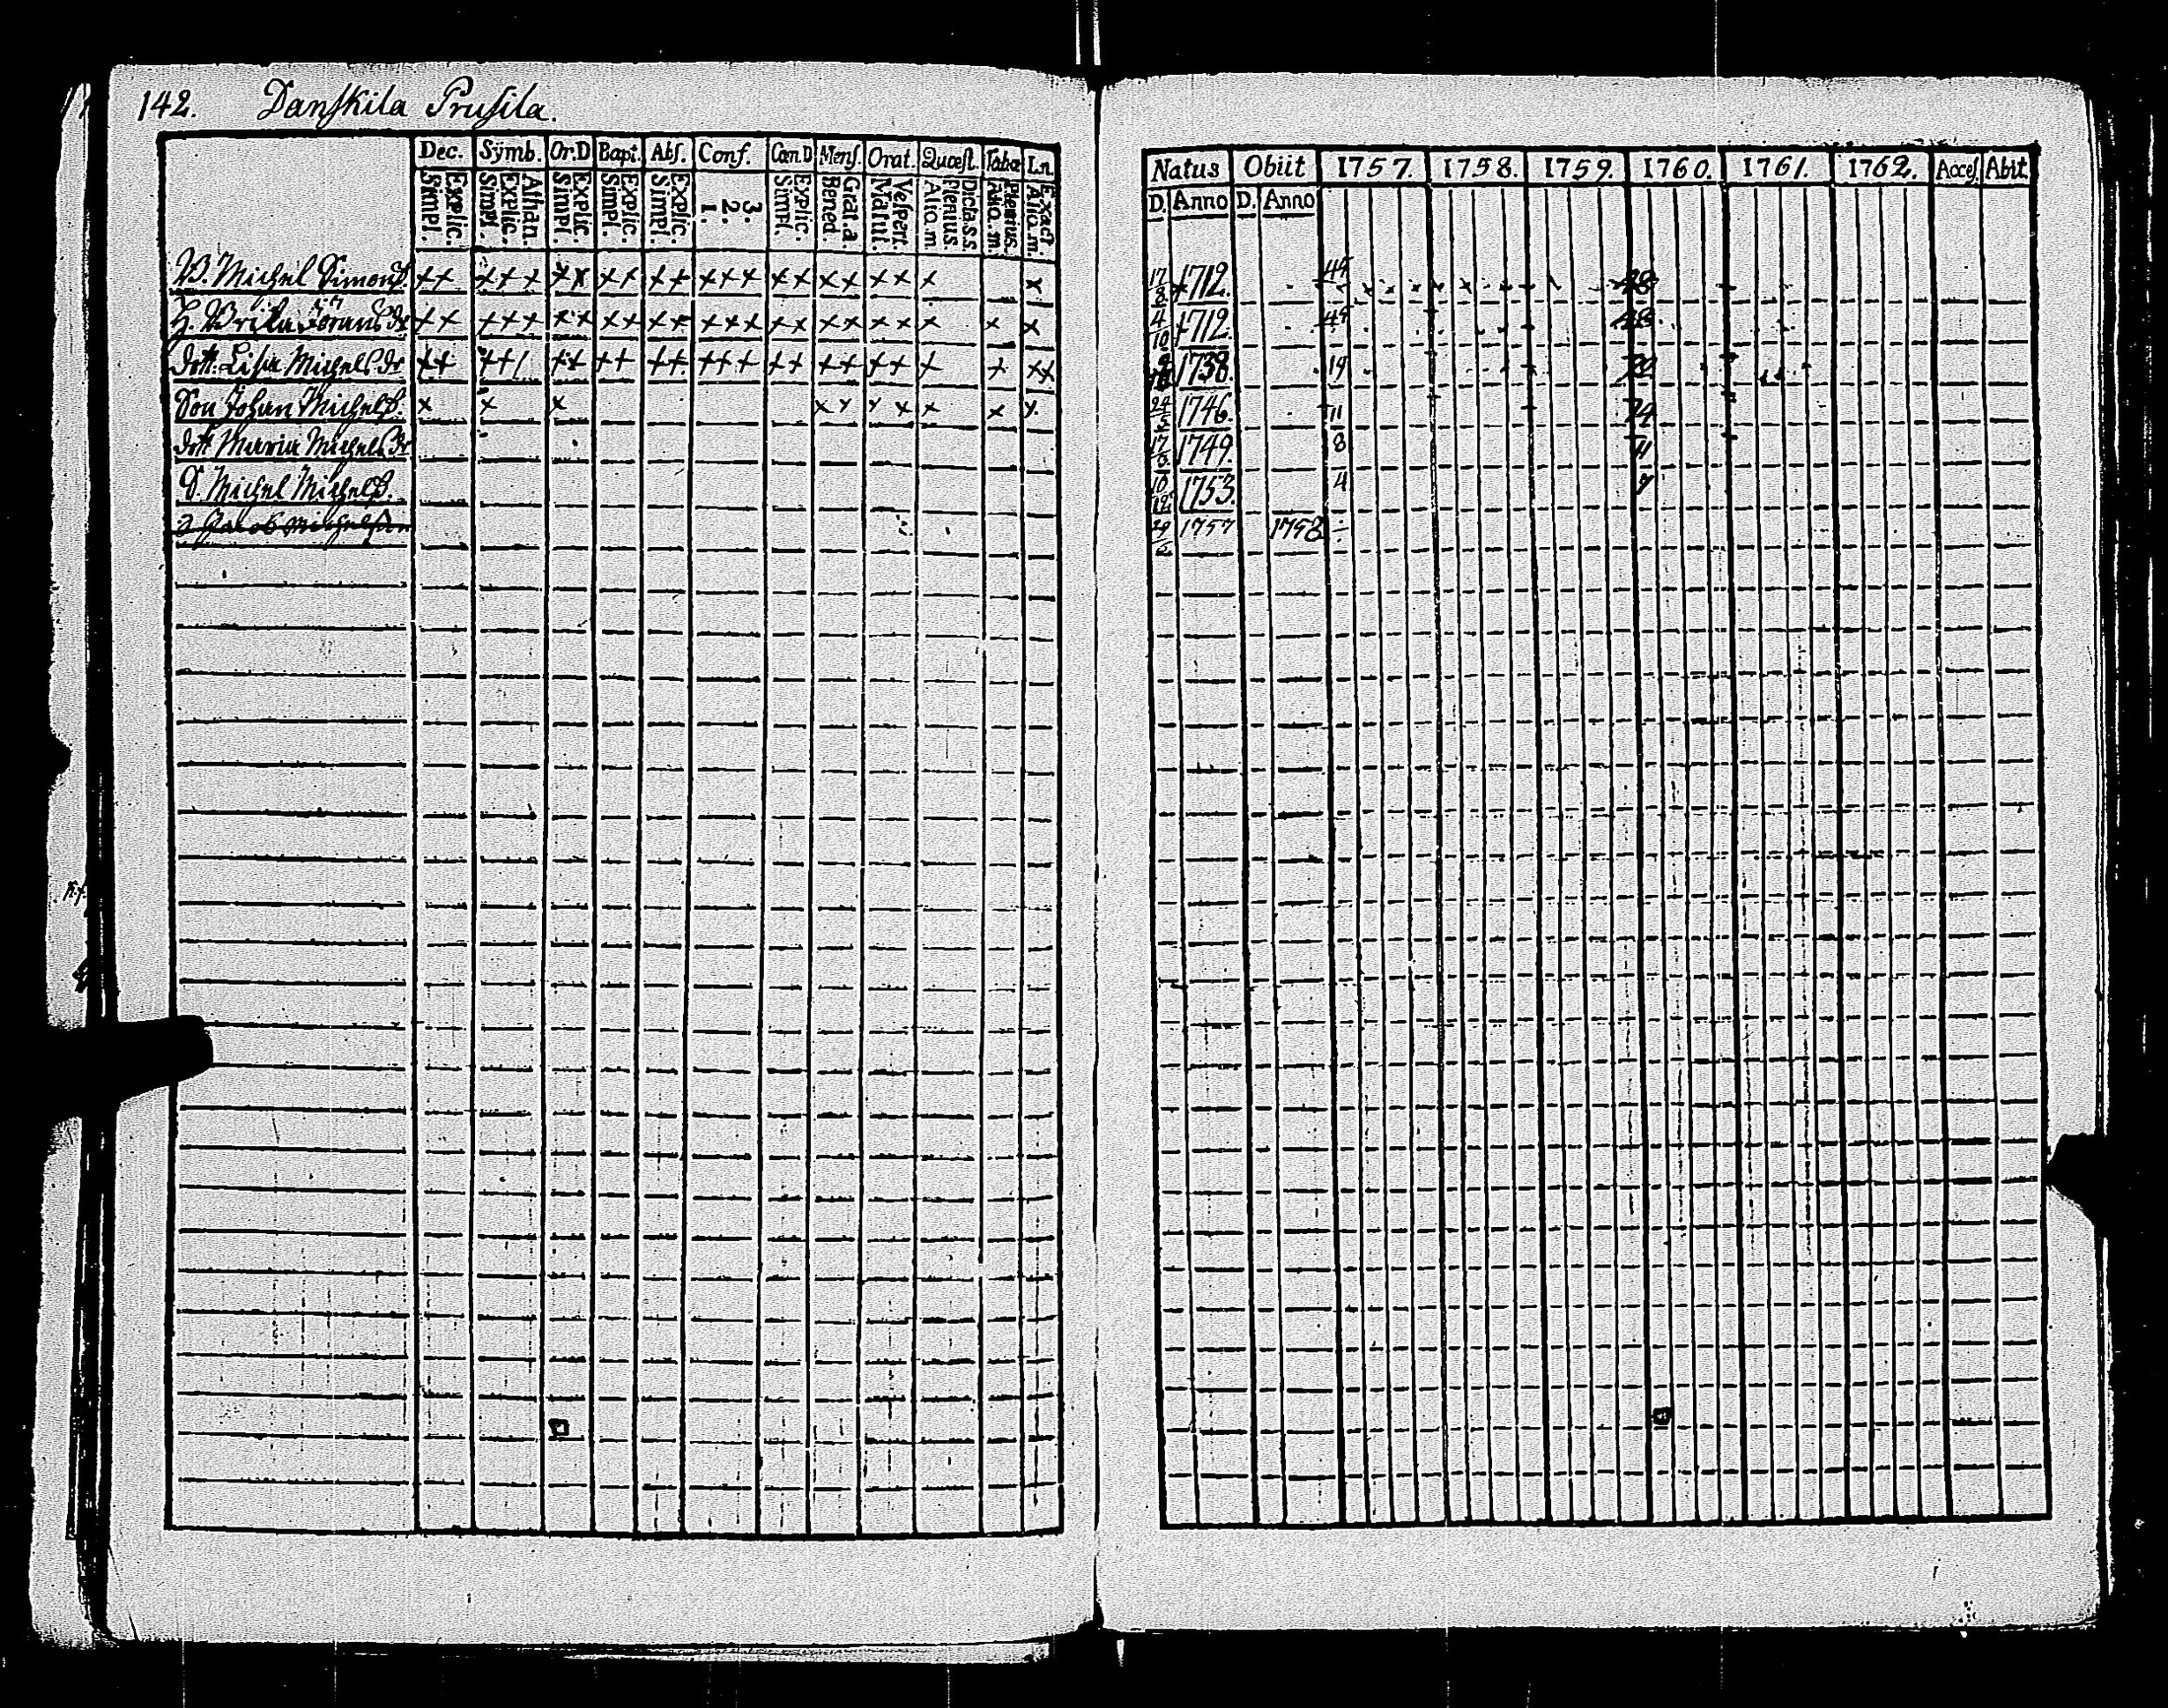 142. Danſkila Pruſila.
Dec. Symb. Or.D Bapt. Abſ. Conf. Cœn.D Menſ. Orat. Quœſt. Tabœ Ln
Simpl. Explic. Simpl. Explic. Athan. Simpl. Explic. Simpl. Explic. Simpl. Explic. 1. 2. 3. Simpl. Explic. Bened. Grat.a. Matut. Veſpert. Alio.m Plenius Dicta.s.s. Alio.m. Plenius. Alio.m. Exact
B. Michel Simonſ. ×× ××× ×× ×× ×× ××× ×× ×× ×× × ×
H. Brita Jöransdr ×× ××× ×× ×× ×× ××× ×× ×× ×× × × ×
dott. Liſa Michelsdr ×× ××/ ×× ×× ×× ××× ×× ×× ×× × × ××
Son Johan Michelſ. × × × ×× ×× × × ×
dott Maria Michelsdr
S. Michel Michelſ.
Jacob Michelſon
Natus Obiit 1757. 1758. 1759. 1760. 1761. 1762. Acceſ. Abit.
D. Anno D. Anno
17/8 1712. 45 48
4/10 1712. 45 48
1738. 19
24/5 1746. 11 14
17 1749. 8 11
10/12 1753. 4 7
1757 1758